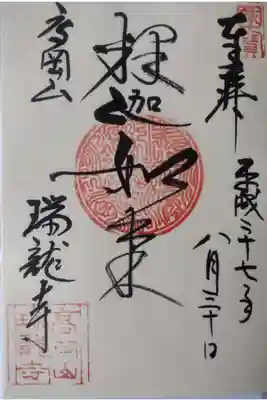 奉拝
平成二十七年
八月二十日
釈迦如来
高岡山
瑞龍寺
高岡山
瑞龍寺